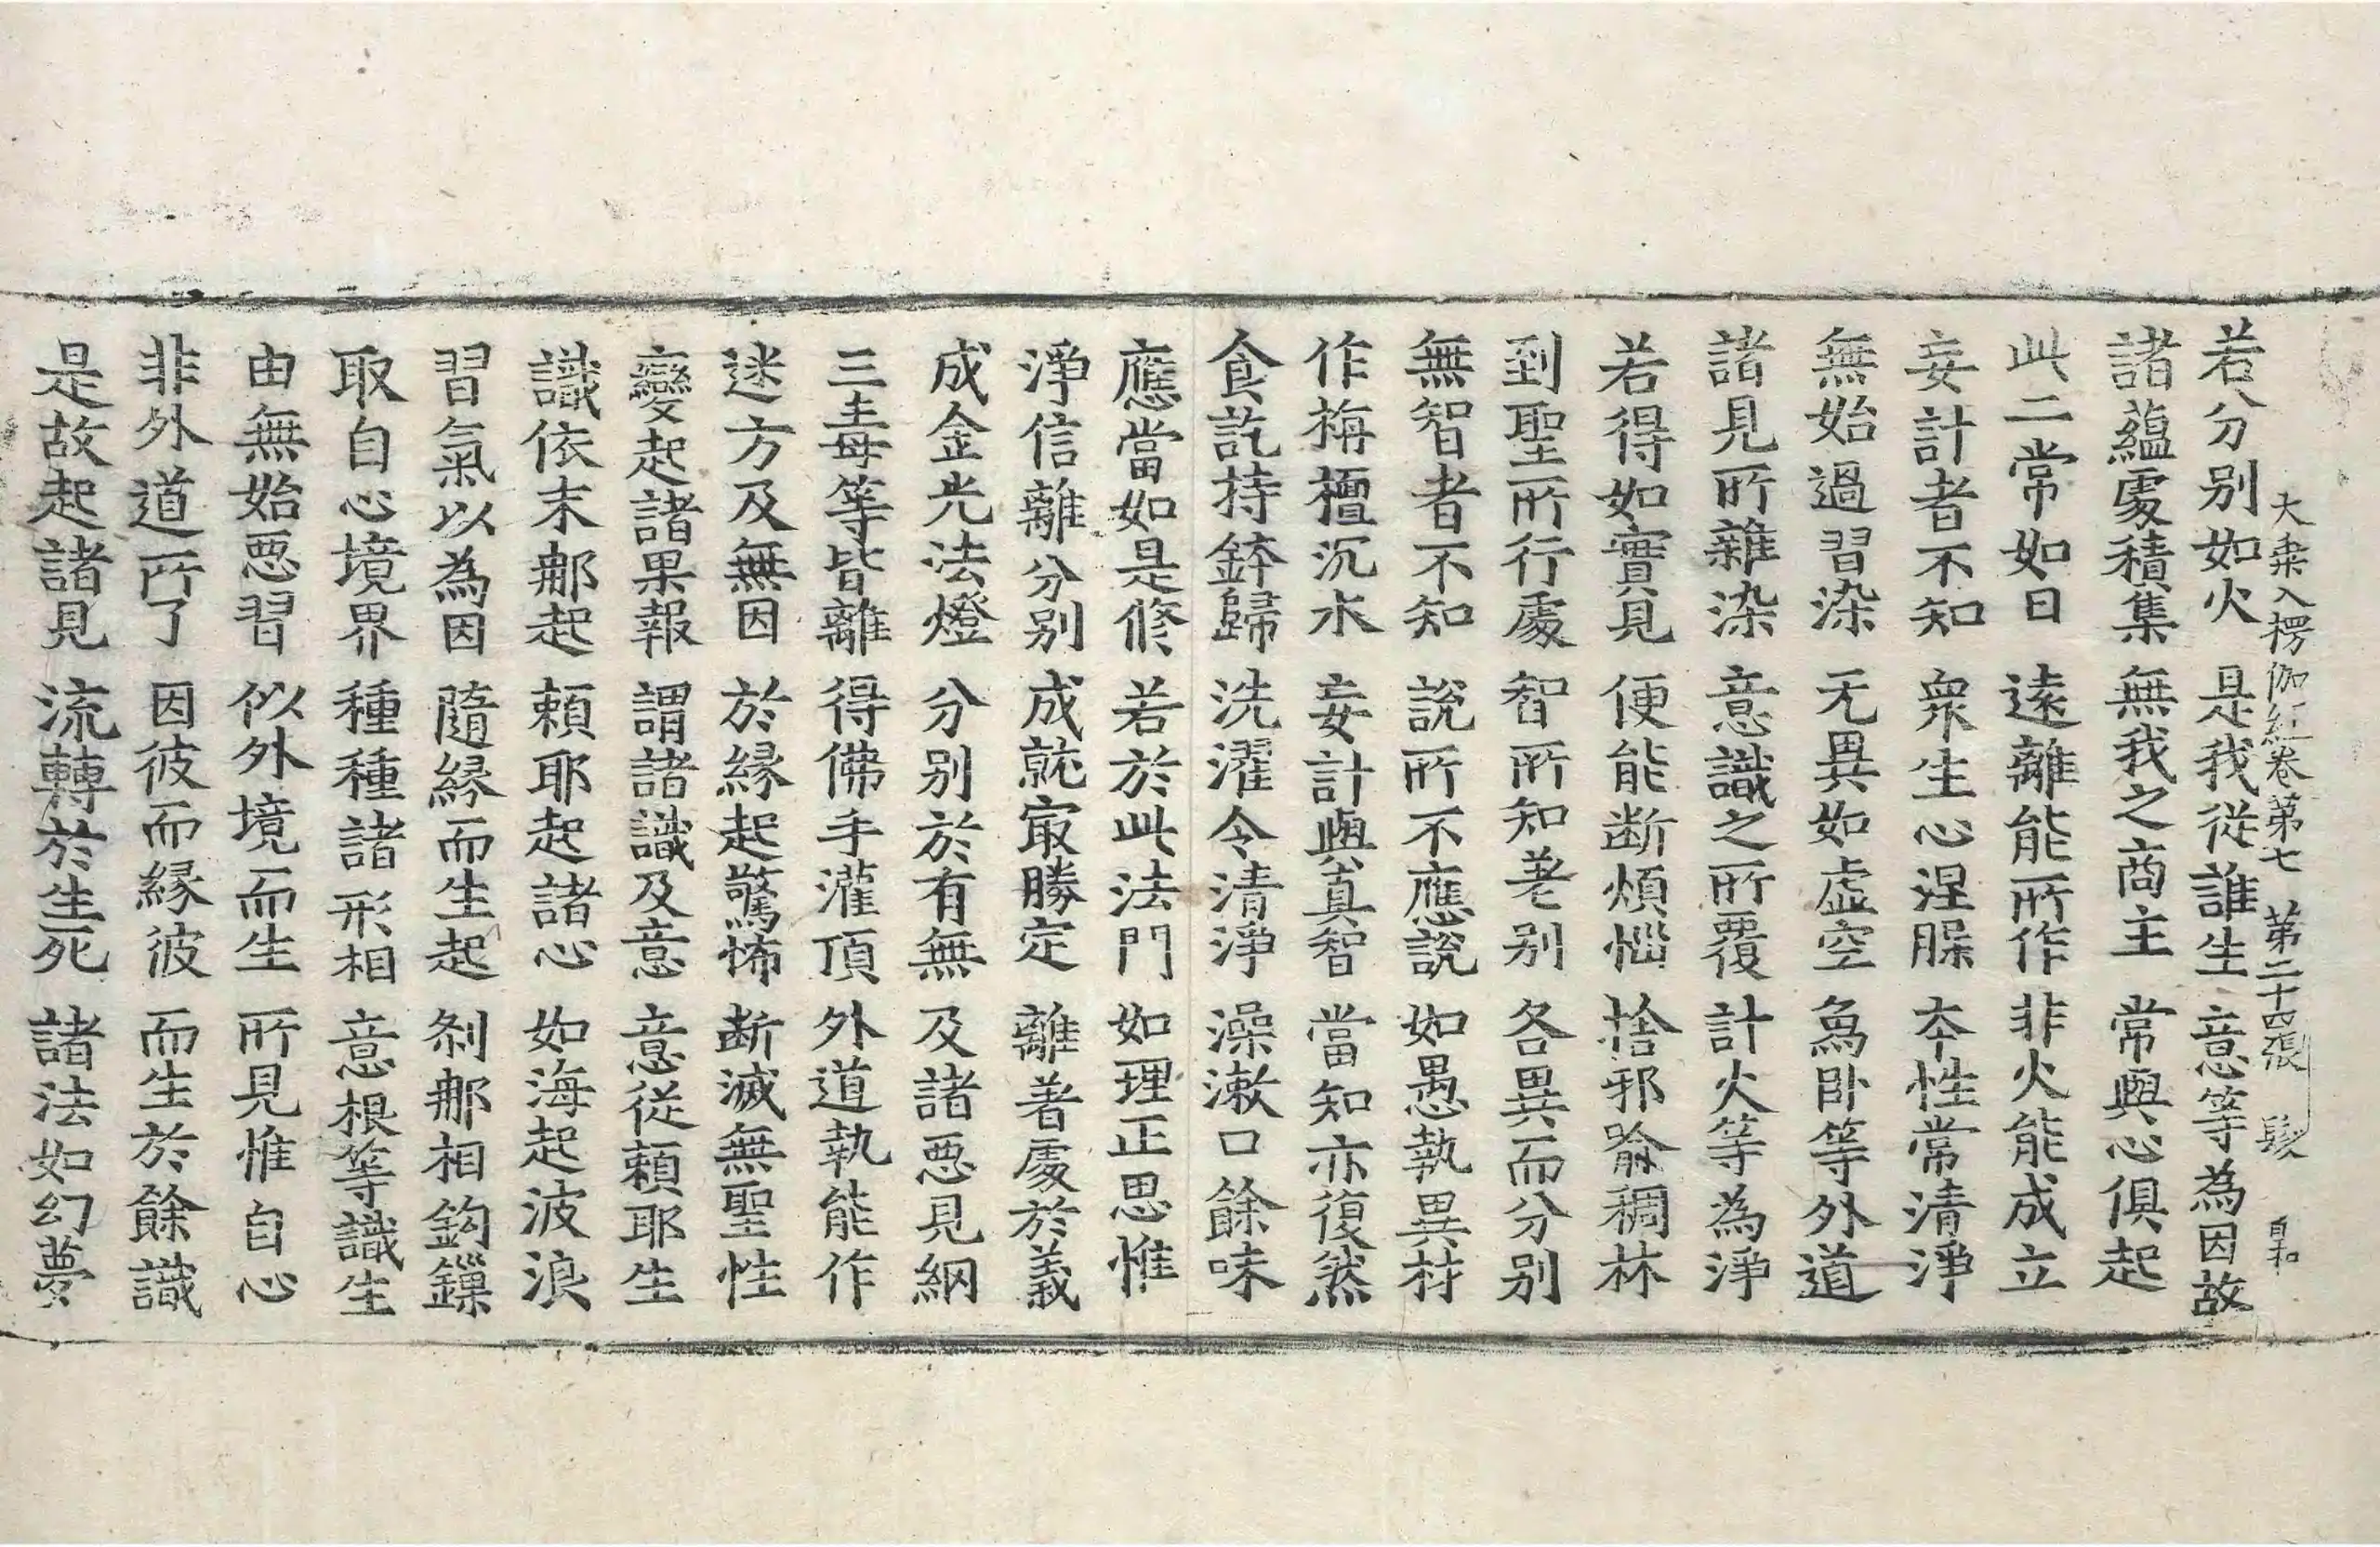 大乗入楞伽経卷第七　第二十四張　髮　自和
若分別如火　是我從誰生　意等為因故
諸蘊處積集　無我之商主　常與心俱起
此二常如日　遠離能所作　非火能成立
妄計者不知　衆生心涅腺　本性常清淨
無始過習染　无異如虛空　象卧等外道
諸見所雜染　意識之所覆　計火等為淨
若得如實見　便能断煩惱　捨邪喻稠林
到聖所行處　智所知差別　各異而分別
無智者不知　說所不應說　如愚執異材
作栴檀沉水　妄計與真智　當知亦復然
食訖持鉢歸　洗濯令清淨　澡漱口餘味
應當如是修　若於此法門　如理正思惟
淨信離分別　成就㝡勝定　離著處於義
成金光法燈　分別於有無　及諸惡見網
三毒等皆離　得佛手灌頂　外道執能作
迷方及無因　於緣起驚怖　断滅無聖性
變起諸果報　謂諸識及意　意從賴耶生
識依末那起　賴耶起諸心　如海起波浪
習氣以為因　隨緣而生起　剎那相鈎鏁
取自心境界　種種諸形相　意根等識生
由無始惡習　似外境而生　所見惟自心
非外道所了　因彼而緣彼　而生於餘識
是故起諸見　流轉於生死　諸法如幻夢